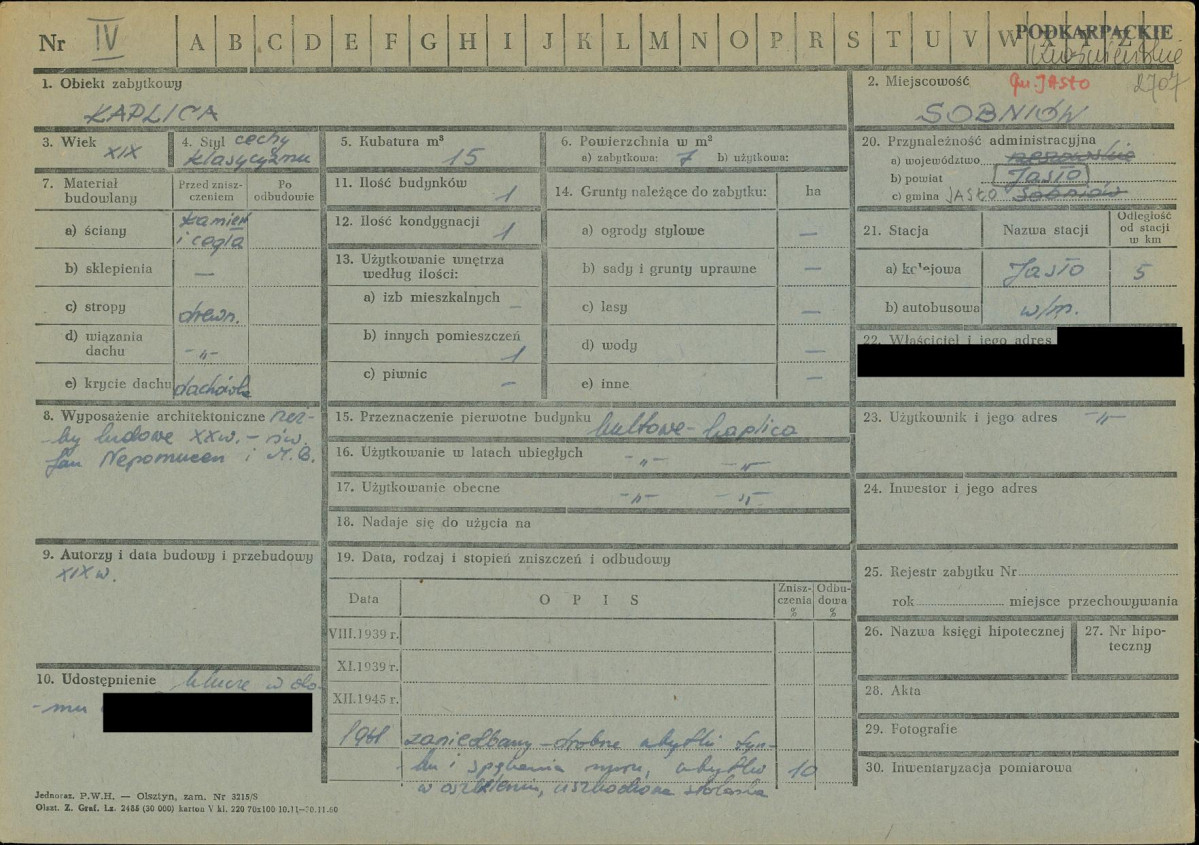 Nr IV A B C D E F G H I J K L M N O P R S T U V W X Y Z
PODKARPACKIE
1. Obiekt zabytkowy
KAPLICA
2. Miejscowość gm. JASŁO 2707
SOBNIÓW
3. Wiek XIX
4. Styl cechy
klasycyzmu
5. Kubatura m³
15
6. Powierzchnia w m²
a) zabytkowa: 7 b) użytkowa:
20. Przynależność administracyjna
a) województwo rzeszowskie
b) powiat Jasło
c) gmina JASŁO Sobniów
7. Materiał
budowlany
Przed znisz-
czeniem
Po
odbudowie
a) ściany kamień
i cegła
b) sklepienia —
c) stropy drewn.
d) wiązania
dachu -„-
e) krycie dachu dachówka
11. Ilość budynków 1
12. Ilość kondygnacji 1
13. Użytkowanie wnętrza
według ilości:
a) izb mieszkalnych –
b) innych pomieszczeń
1
c) piwnic –
14. Grunty należące do zabytku: ha
a) ogrody stylowe —
b) sady i grunty uprawne —
c) lasy —
d) wody —
e) inne —
21. Stacja Nazwa stacji Odległość
od stacji
w km
a) kolejowa Jasło 5
b) autobusowa w/m.
22. Właściciel i jego adres
8. Wyposażenie architektoniczne rzeź-
by ludowe XX w. – św.
Jan Nepomucen i M.B.
15. Przeznaczenie pierwotne budynku kultowe - kaplica
16. Użytkowanie w latach ubiegłych -„- -„-
17. Użytkowanie obecne -„- -„-
18. Nadaje się do użycia na
23. Użytkownik i jego adres -„-
24. Inwestor i jego adres
9. Autorzy i data budowy i przebudowy
XIX w.
19. Data, rodzaj i stopień zniszczeń i odbudowy
Data O P I S Znisz-
czenia
% Odbu-
dowa
%
VIII.1939 r.
XI.1939 r.
XII.1945 r.
1961 zaniedbany - drobne ubytki tyn-
ku i spękania muru, ubytki 10
w oszkleniu, uszkodzona stolarka
25. Rejestr zabytku Nr
rok miejsce przechowywania
26. Nazwa księgi hipotecznej
27. Nr hipo-
teczny
10. Udostępnienie klucze w do-
mu
28. Akta
29. Fotografie
30. Inwentaryzacja pomiarowa
Jednoraz. P.W.H. — Olsztyn, zam. Nr 3215/S
Olszt. Z. Graf. Lz. 2485 (30 000) karton V kl. 220 70x100 10.11—20.11.60